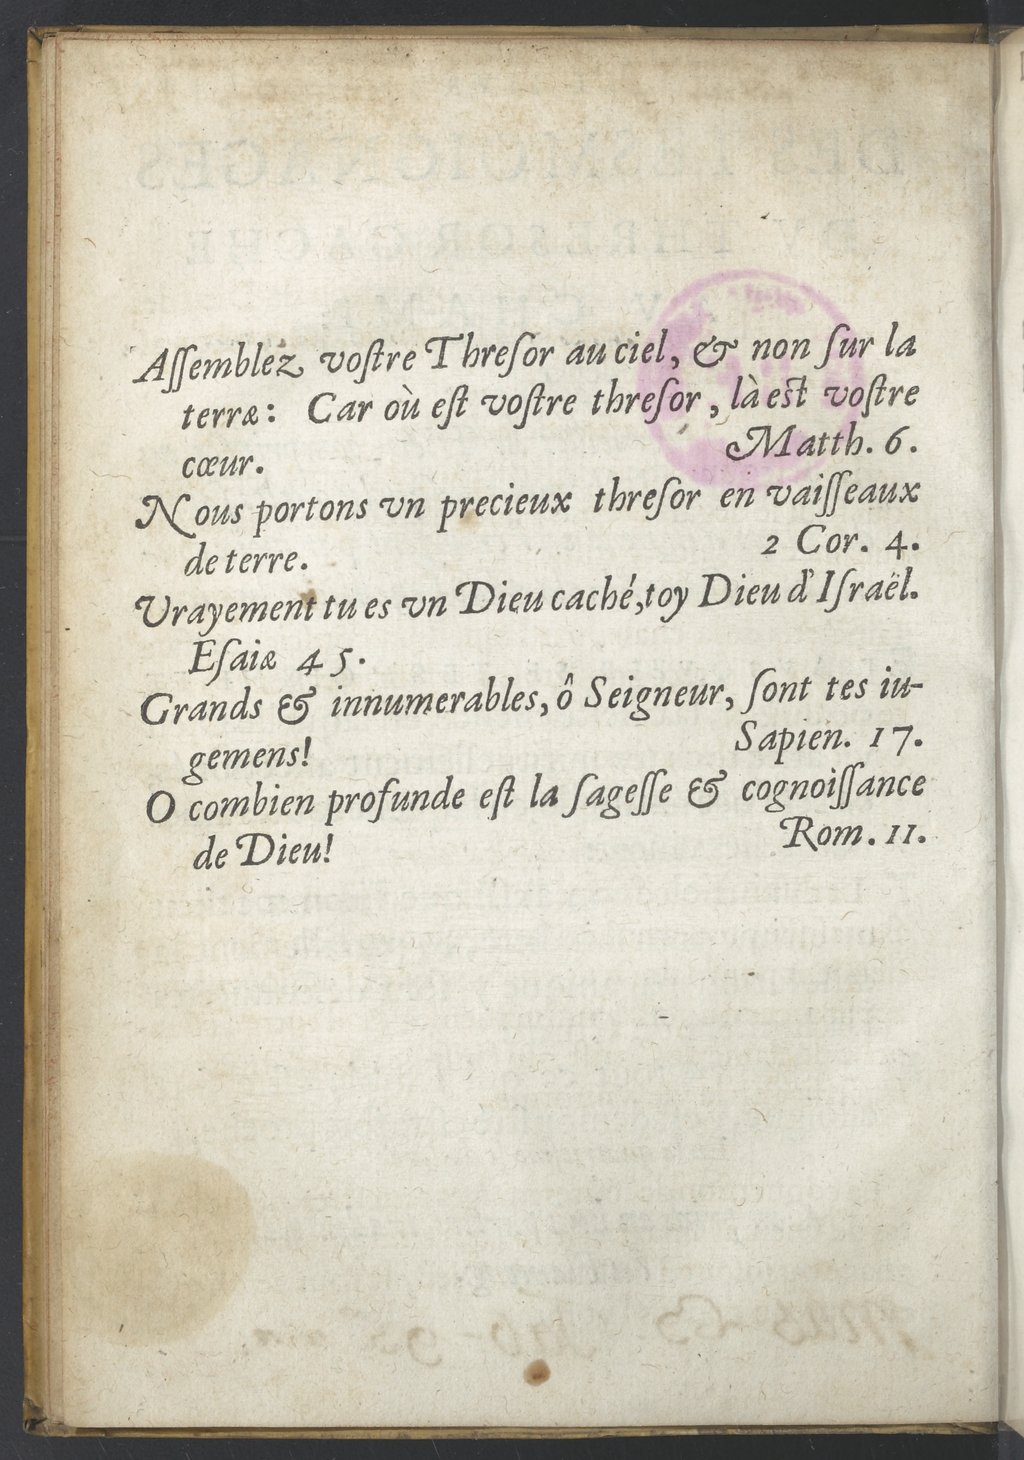 Aſſemblez voſtre Threſor au ciel, & non ſur la
terræ: Car où eſt voſtre threſor, là eſt voſtre
cœur. Matth. 6.
Nous portons vn precieux threſor en vaiſſeaux
de terre. 2 Cor. 4.
Vrayement tu es vn Dieu caché, toy Dieu d'Iſraël.
Eſaiæ 45.
Grands & innumerables, ô Seigneur, ſont tes iu-
gemens! Sapien. 17.
O combien profunde eſt la ſageſſe & cognoiſſance
de Dieu! Rom. 11.